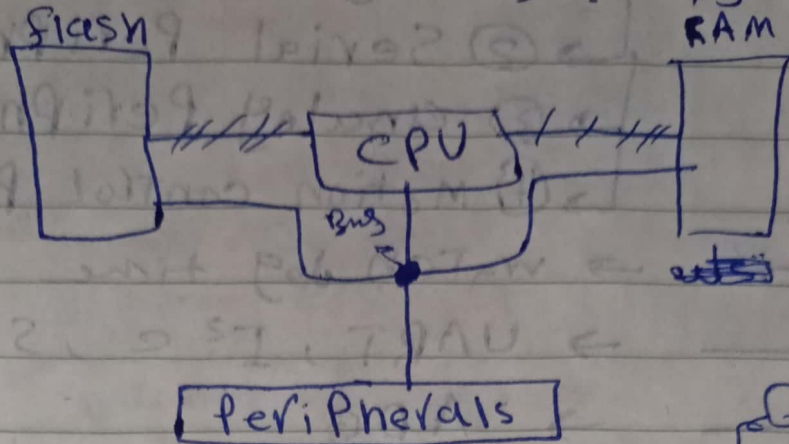 flash
RAM
CPU
Bus
Peripherals